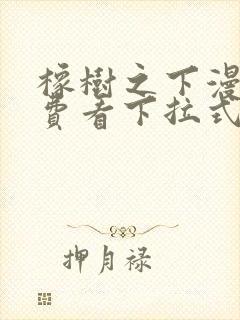 橡樹之下漫
費者下拉式
押月禄